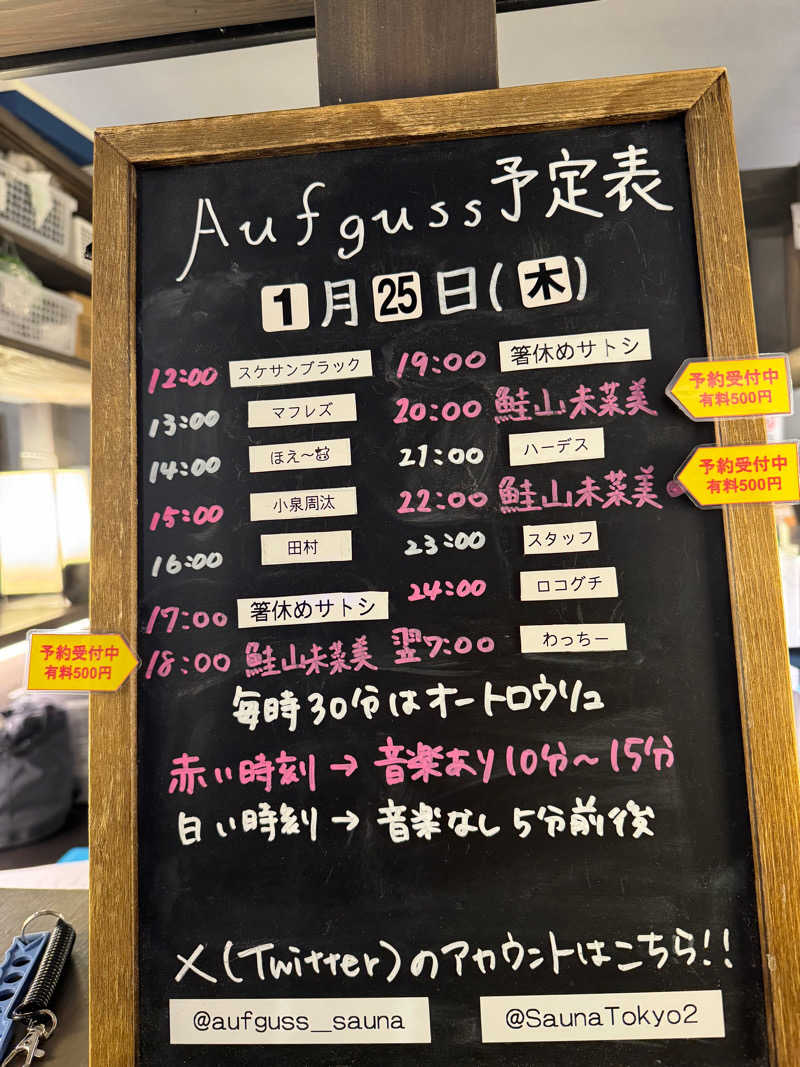 Aufguss予定表
1月25日(木)
12:00 スケサンブラック
13:00 マフレズ
14:00 ほえ〜
15:00 小泉周汰
16:00 田村
17:00 箸休めサトシ
18:00 鮭山未菜美
予約受付中
有料500円
19:00 箸休めサトシ
20:00 鮭山未菜美
予約受付中
有料500円
21:00 ハーデス
22:00 鮭山未菜美
予約受付中
有料500円
23:00 スタッフ
24:00 ロコグチ
翌7:00 わっちー
毎時30分はオートロウリュ
赤い時刻→音楽あり10分〜15分
白い時刻→音楽なし5分前後
X(Twitter)のアカウントはこちら!!
@aufguss_sauna
@SaunaTokyo2